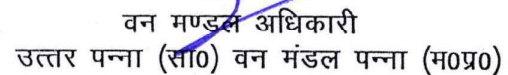 वन मण्डल अधिकारी
उत्तर पन्ना (सा0) वन मंडल पन्ना (म0प्र0)